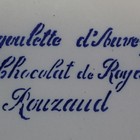 goulette d'Auve
Chocolat de Roya
Rouzaud